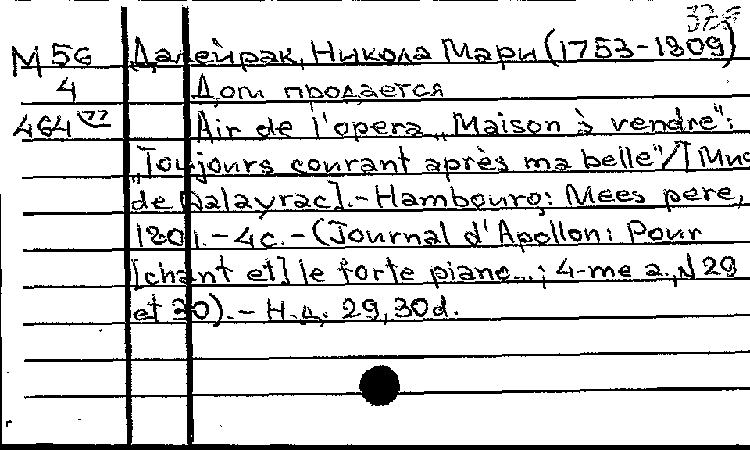 М 56 Далейрак, Никола Мари (1753-1809)
4 Дом продается
464 Air de l'opera „Maison à vendre":
„Toujours courant après ma belle"/[Mus
de Dalayrac].-Hambourg: Mees pere,
1801.-4с.-(Journal d'Apollon: Pour
[chant et] le forte piano...; 4-me a., N 29
et 30).- Н.д. 29,30d.